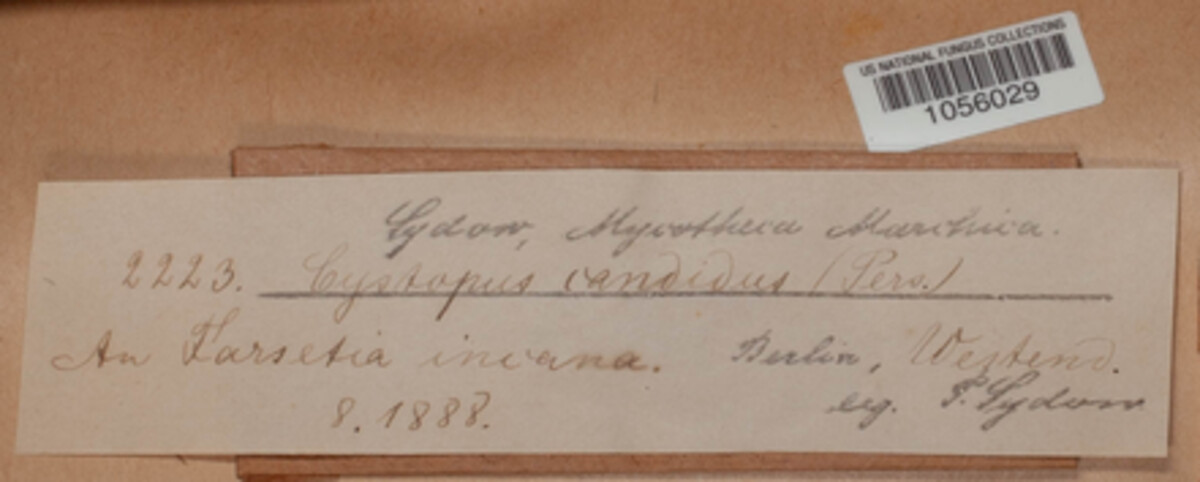 US NATIONAL FUNGUS COLLECTIONS
1056029
Sydow, Mycotheca Marchica.
2223. Cystopus candidus (Pers.)
An Farsetia incana. Berlin, Westend.
8. 1888. leg. P. Sydow